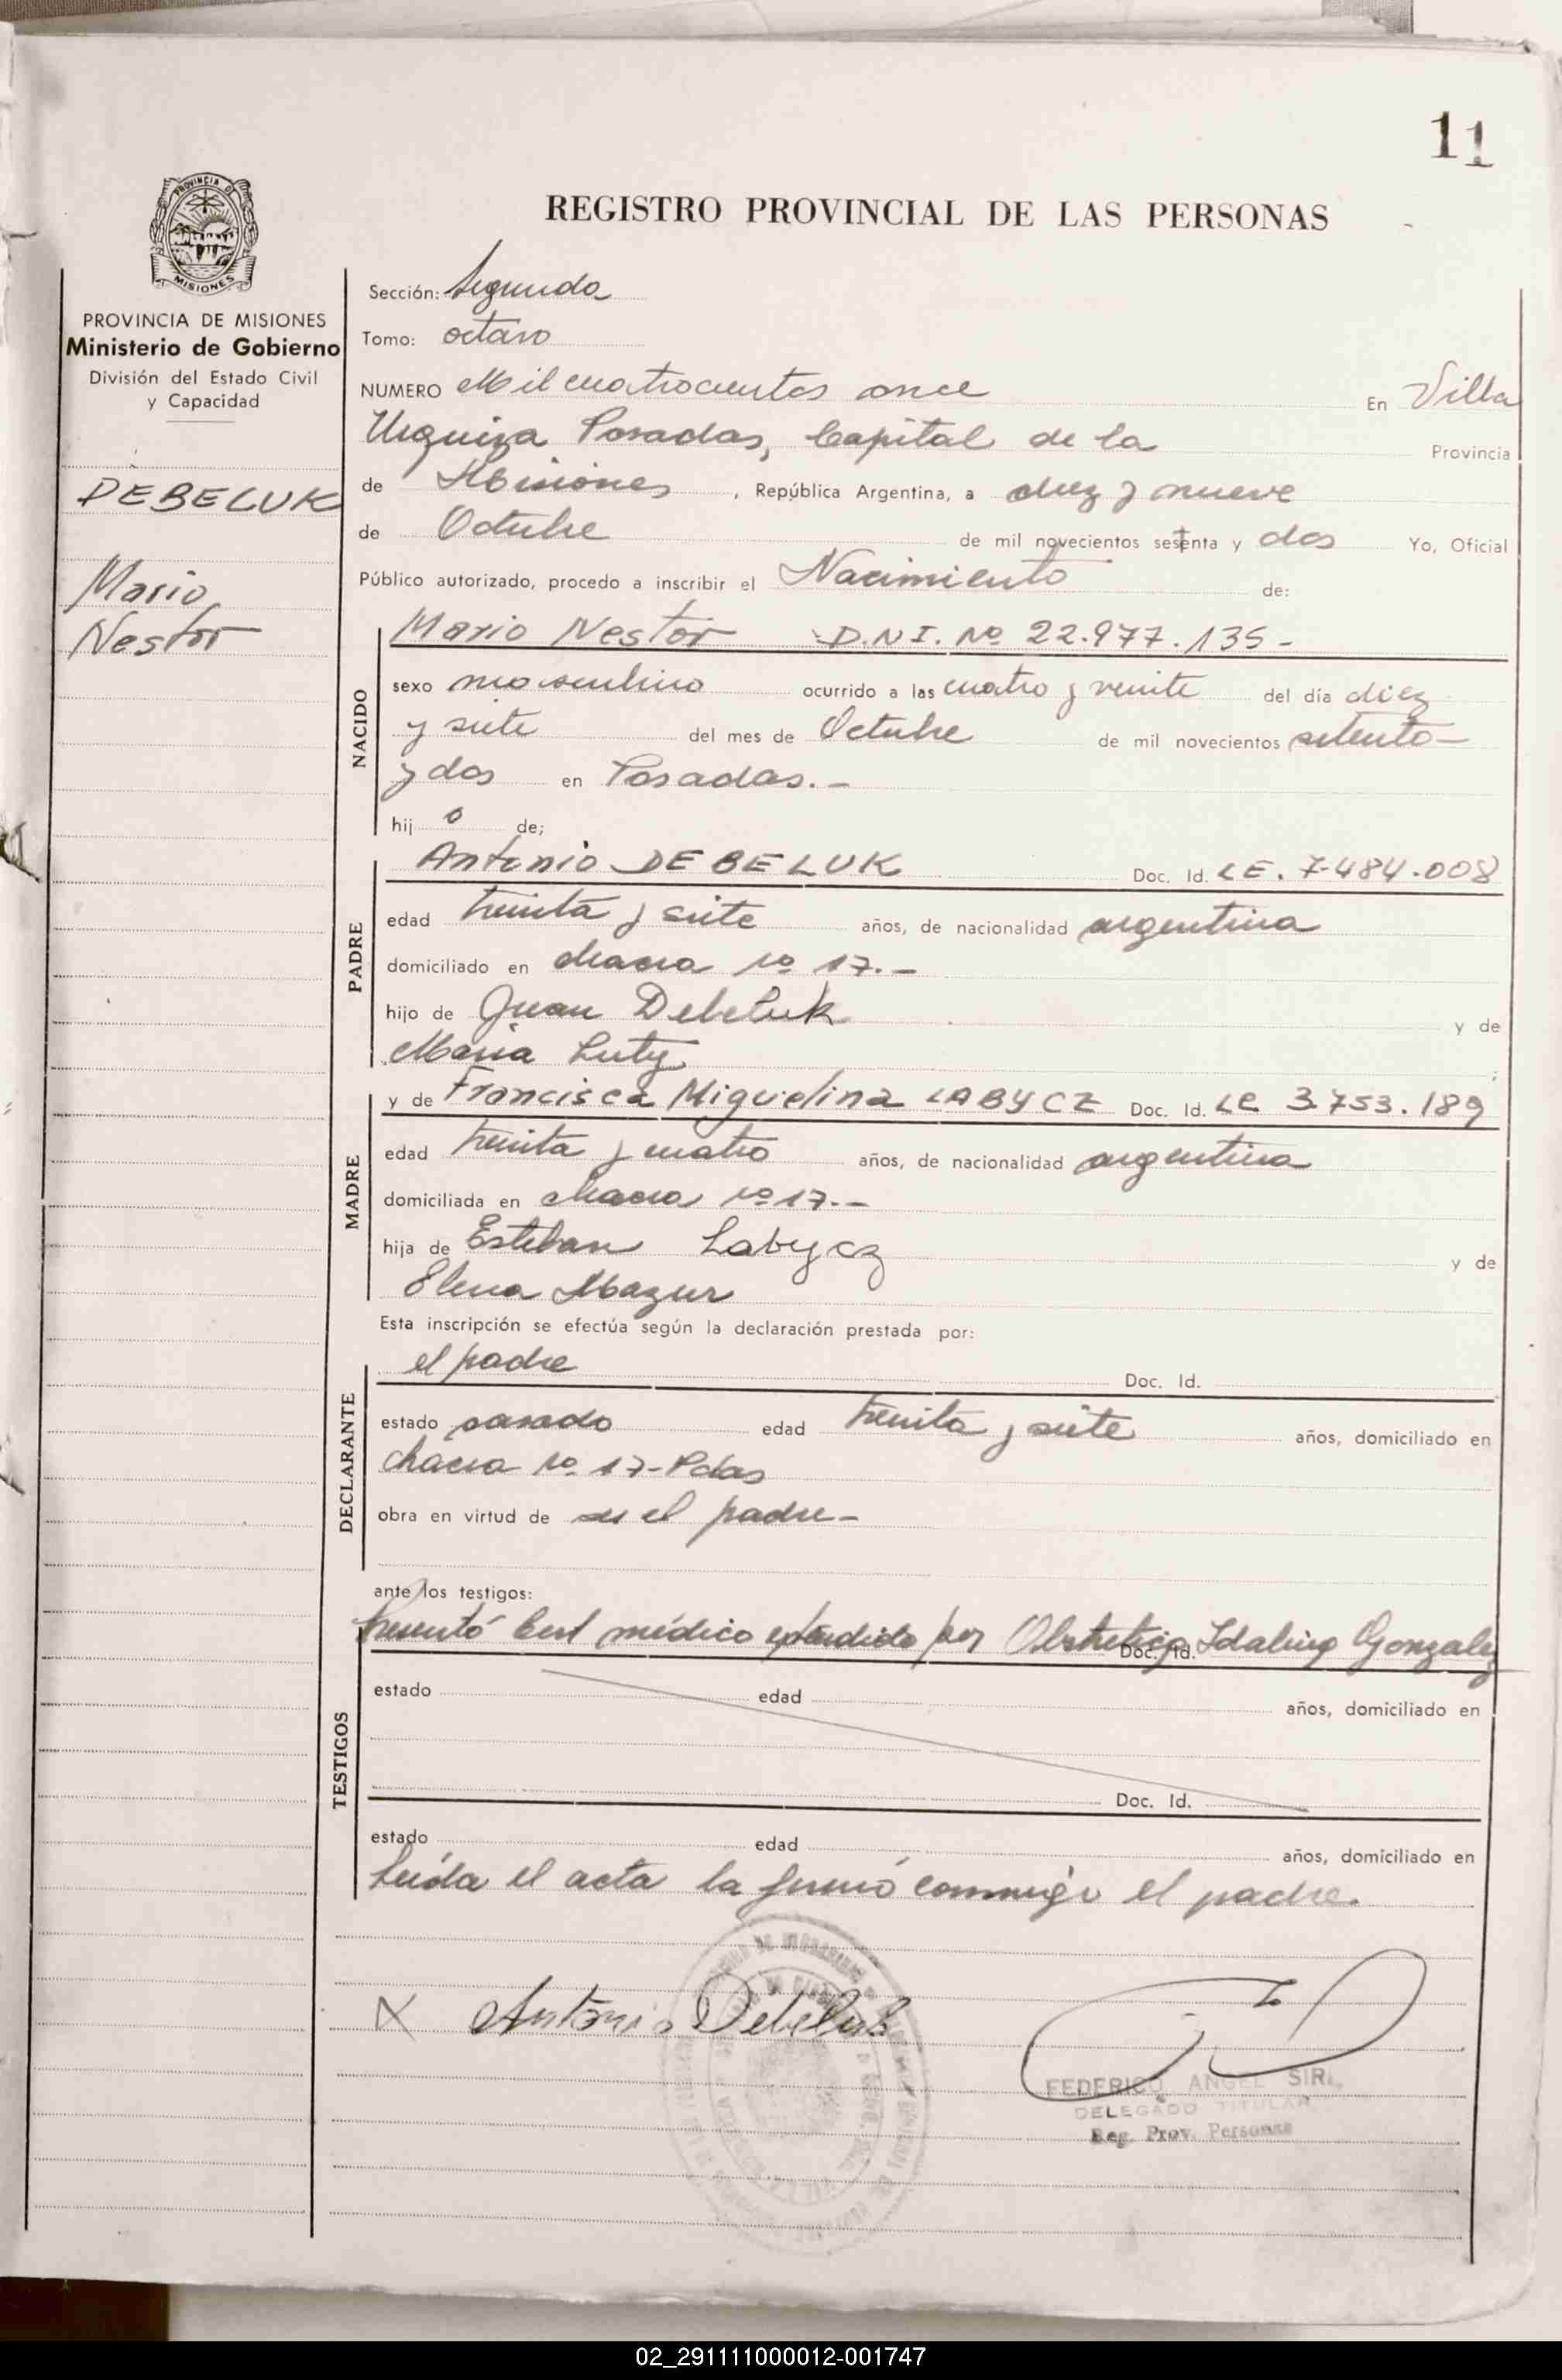 11
PROVINCIA DE
MISIONES
REGISTRO PROVINCIAL DE LAS PERSONAS
PROVINCIA DE MISIONES
Ministerio de Gobierno
División del Estado Civil
y Capacidad
DEBELUK
Mario
Nestor
Sección: Segunda
Tomo: octavo
NUMERO Mil cuatrocientos once En Villa
Urquiza Posadas, Capital de la Provincia
de Misiones, República Argentina, a diez y nueve
de Octubre de mil novecientos setenta y dos Yo, Oficial
Público autorizado, procedo a inscribir el Nacimiento de:
NACIDO
Mario Nestor D.N.I. Nº 22.977.135-
sexo masculino ocurrido a las cuatro y veinte del día diez
y siete del mes de Octubre de mil novecientos setenta-
y dos en Posadas.-
hij o de;
PADRE
Antonio DEBELUK Doc. Id. LE. 7.484.008
edad treinta y siete años, de nacionalidad argentina
domiciliado en chacra nº 17.-
hijo de Juan Debeluk y de
Maria Luty
MADRE
y de Francisca Miguelina LABYCZ Doc. Id. LE 3.753.189
edad treinta y cuatro años, de nacionalidad argentina
domiciliada en chacra nº 17.-
hija de Esteban Labycz y de
Elena Mazur
Esta inscripción se efectúa según la declaración prestada por:
DECLARANTE
el padre Doc. Id.
estado casado edad treinta y siete años, domiciliado en
chacra nº 17-Pdas
obra en virtud de ser el padre-
ante los testigos:
TESTIGOS
Presentó Cert médico extendido por Obstetrica Doc. Id. Idalina Gonzalez
estado edad años, domiciliado en
Doc. Id.
estado edad años, domiciliado en
Leída el acta la firmó conmigo el padre.
X Antonio Debeluk
FEDERICO ANGEL SIRI
DELEGADO TITULAR
Reg. Prov. Personas
02_291111000012-001747